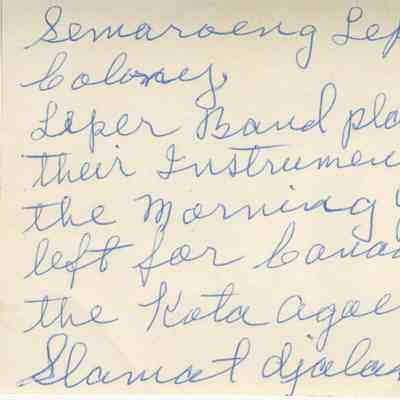 Semaroeng Lep
Colony.
Leper Band pla
their Instrumen
the Morning
left for Canad
the Kota Agoe
Slamat djalan